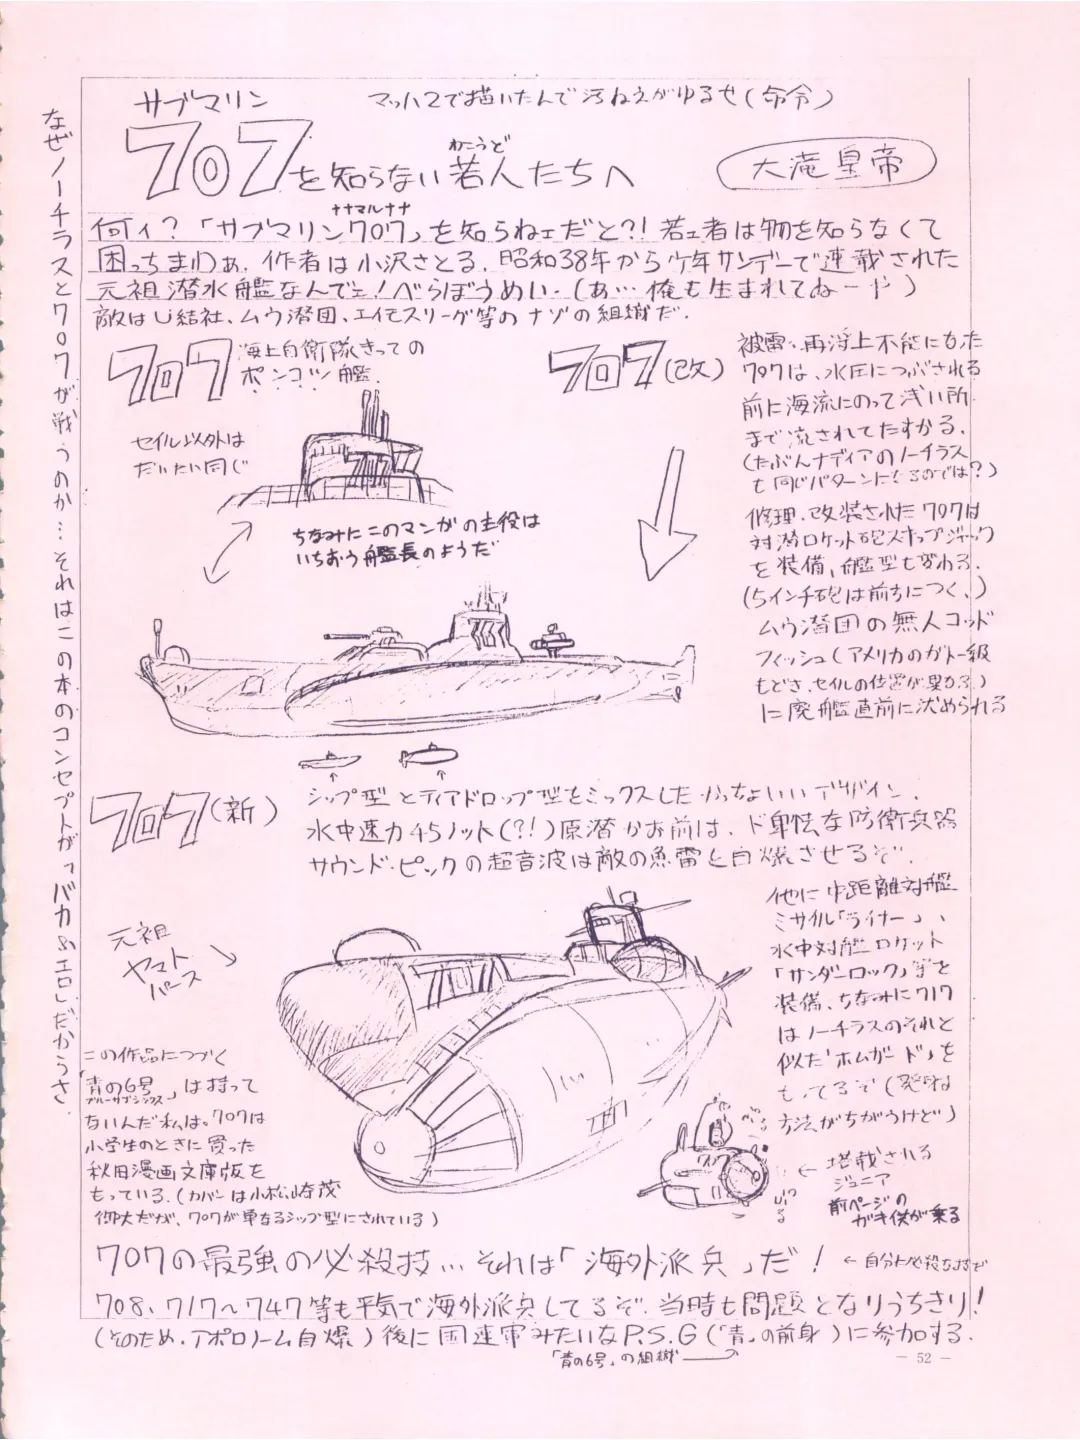 サブマリン
707を知らない若人たちへ
わこうど
マッハ2で描いたんで汚ねえがゆるせ(命令)
大滝皇帝
ナナマルナナ
何ィ?「サブマリン707」を知らねェだと?!若ェ者は物を知らなくて
困っちまわぁ.作者は小沢さとる.昭和38年から少年サンデーで連載された
元祖潜水艦なんでェ!べらぼうめい.(あ…俺も生まれてねーや)
敵はU結社、ムウ潜団、エイモスリーグ等のナゾの組織だ.
707
海上自衛隊きっての
ポンコツ艦.
セイル以外は
だいたい同じ
ちなみにこのマンガの主役は
いちおう艦長のようだ
707(改)
被雷・再浮上不能になった
707は、水圧につぶされる
前に海流にのって浅い所
まで流されてたすかる.
(たぶんナディアのノーチラス
も同じパターンになるのでは?)
修理・改装された707は
対潜ロケット砲スキップジャック
を装備、艦型も変わる.
(5インチ砲は前方につく、)
ムウ潜団の無人コッド
フィッシュ(アメリカのガトー級
もどき.セイルの位置が異なる)
に廃艦直前に沈められる
707(新)
シップ型とティアドロップ型をミックスしたかっちょいいデザイン.
水中速力45ノット(?!)原潜かお前は.ド卑怯な防衛兵器
サウンド・ピックの超音波は敵の魚雷を自爆させるぞ.
元祖
ヤマト
パース
他に中距離対艦
ミサイル「ライナー」、
水中対艦ロケット
「サンダーロック」等を
装備.ちなみに717
はノーチラスのそれと
似た「ホムガード」を
もってるぞ(発射
方法がちがうけど)
この作品につづく
「青の6号」は持って
ブルーサブシックス
ないんだ私は。707は
小学生のときに買った
秋田漫画文庫版を
もっている.(カバンは小松崎茂
御大だが、707が単なるシップ型にされている)
707
←塔載される
ジュニア
前ページの
ガキ供が乗る
707の最強の必殺技…それは「海外派兵」だ!
708、717〜747等も平気で海外派兵してるぞ.当時も問題となりうちきり!
(そのため.アポロノーム自爆)後に国連軍みたいなP.S.G(「青」の前身)に参加する.
「青の6号」の組織
— 52 —
なぜノーチラスと707が戦うのか…それはこの本のコンセプトが「バカ&エロ」だからさ.